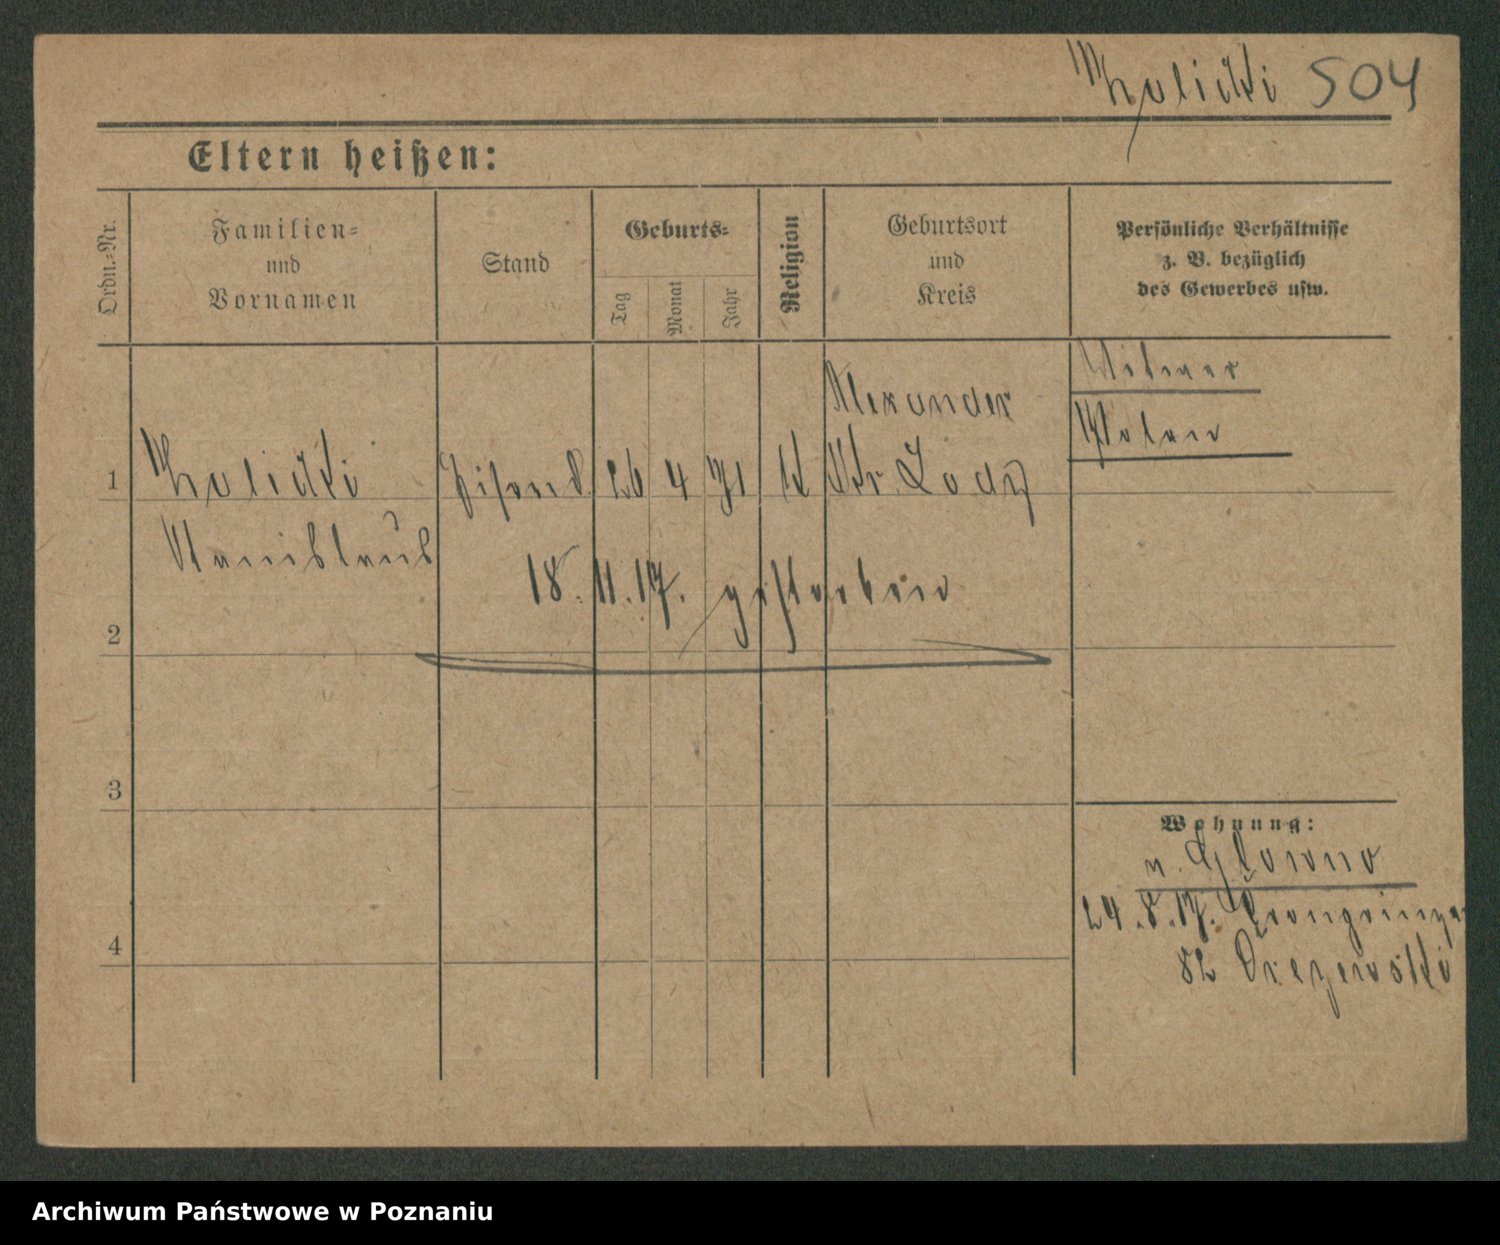 Wolicki 504
Eltern heißen:
Ordn.-Nr.
Familien-
und
Vornamen
Stand
Geburts-
Tag
Monat
Jahr
Religion
Geburtsort
und
Kreis
Persönliche Verhältnisse
z. B. bezüglich
des Gewerbes usw.
Witwer
Polen
Alexander
1 Wolicki 26 4 71 K Kr. Lodz
Stanislaus
18.11.17. gestorben
2
3
4
Wohnung:
v. Glowno
24.8.17. Kronprinzen
82
Archiwum Państwowe w Poznaniu